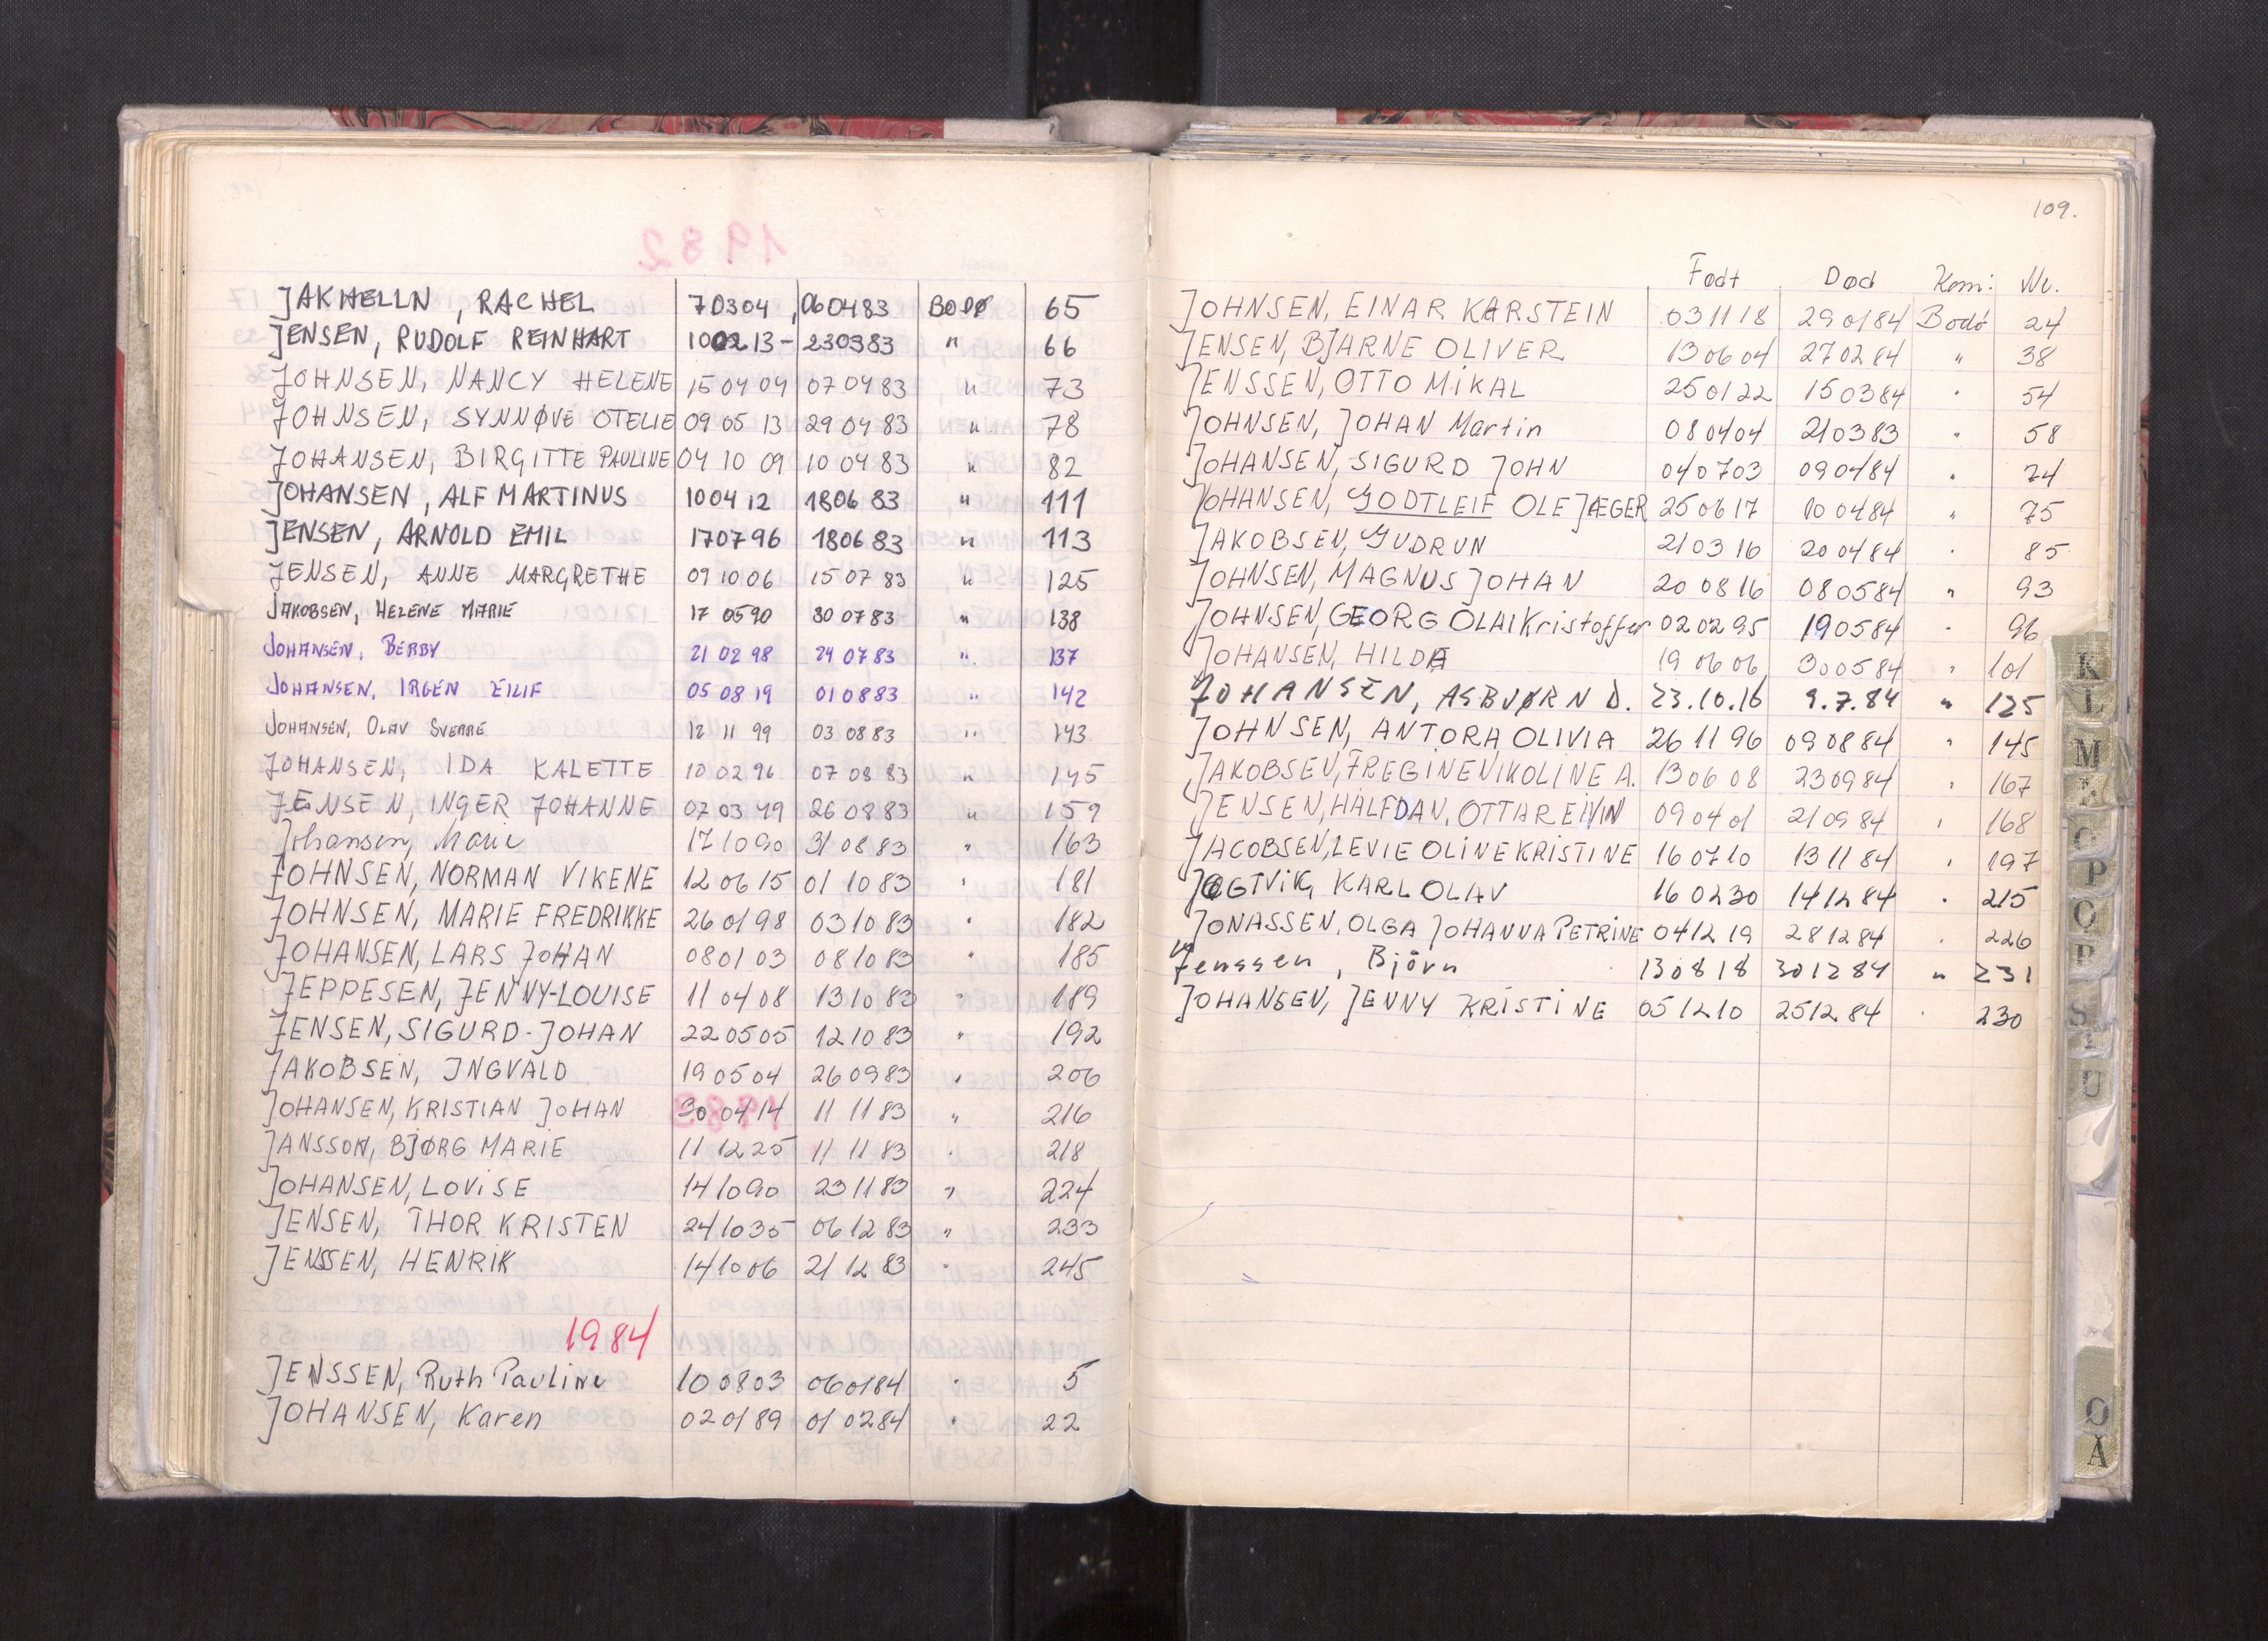 JAKHELLN, RACHEL 70304, 060483 BODØ 65
JENSEN, RUDOLF REINHART 100213- 230383 " 66
JOHNSEN, NANCY HELENE 15 04 04 07 04 83 " 73
JOHNSEN, SYNNØVE OTELIE 09 05 13 29 04 83 " 78
JOHANSEN, BIRGITTE PAULINE 04 10 09 10 04 83 " 82
JOHANSEN, ALF MARTINUS 10 04 12 1806 83 " 111
JENSEN, ARNOLD EMIL 170796 180683 " 113
JENSEN, ANNE MARGRETHE 09 10 06 15 07 83 " 125
JAKOBSEN, HELENE MARIE 17 0590 30 0783 " 138
JOHANSEN, BERBY 21 02 98 24 07 83 " 137
JOHANSEN, IRGEN EILIF 05 08 19 01 08 83 " 142
JOHANSEN, OLAV SVERRE 12 11 99 03 08 83 " 143
JOHANSEN, IDA KALETTE 10 02 96 07 08 83 " 145
JENSEN, INGER JOHANNE 07 03 49 26 08 83 " 159
Johansen, Marie 17 10 90 31 08 83 " 163
JOHNSEN, NORMAN VIKENE 12 06 15 01 10 83 " 181
JOHNSEN, MARIE FREDRIKKE 26 01 98 03 10 83 " 182
JOHANSEN, LARS JOHAN 08 01 03 08 10 83 " 185
JEPPESEN, JENNY-LOUISE 11 04 08 13 10 83 " 189
JENSEN, SIGURD-JOHAN 22 05 05 12 10 83 " 192
JAKOBSEN, INGVALD 19 05 04 26 09 83 " 206
JOHANSEN, KRISTIAN JOHAN 30 04 14 11 11 83 " 216
JANSSON, BJØRG MARIE 11 12 25 11 11 83 " 218
JOHANSEN, LOVISE 14 10 90 23 11 83 " 224
JENSEN, THOR KRISTEN 24 10 35 06 12 83 " 233
JENSSEN, HENRIK 14 10 06 21 12 83 " 245
1984
JENSSEN, Ruth Pauline 10 08 03 06 01 84 " 5
JOHANSEN, Karen 02 01 89 01 02 84 " 22
109.
Født Død Kom: Nr.
JOHNSEN, EINAR KARSTEIN 03 11 18 29 01 84 Bodø 24
JENSEN, BJARNE OLIVER 13 06 04 27 02 84 " 38
JENSSEN, OTTO MIKAL 25 01 22 15 03 84 " 54
JOHNSEN, JOHAN Martin 08 04 04 21 03 83 " 58
JOHANSEN, SIGURD JOHN 04 07 03 09 04 84 " 74
JOHANSEN, GODTLEIF OLE JÆGER 25 06 17 10 04 84 " 75
JAKOBSEN, GUDRUN 21 03 16 20 04 84 " 85
JOHNSEN, MAGNUS JOHAN 20 08 16 08 05 84 " 93
JOHNSEN, GEORG OLAI Kristoffer 02 02 95 19 05 84 " 96
JOHANSEN, HILDA 19 06 06 30 05 84 " 101
JOHANSEN, ASBJØRN D. 23.10.16 9.7.84 " 125
JOHNSEN, ANTORA OLIVIA 26 11 96 09 08 84 " 145
JAKOBSEN, FREGINE NIKOLINE A. 13 06 08 23 09 84 " 167
JENSEN, HALFDAN, OTTAR EIVIN 09 04 01 21 09 84 " 168
JACOBSEN, LEVIE OLINE KRISTINE 16 07 10 13 11 84 " 197
JEGTVIK, KARL OLAV 16 02 30 14 12 84 " 215
JONASSEN, OLGA JOHANNA PETRINE 04 12 19 28 12 84 " 226
Jenssen, Björn 13 08 18 30 12 84 " 231
JOHANSEN, JENNY KRISTINE 05 12 10 25 12 84 " 230
K
L
M
N
O
P
R
S
T
U
Ø
Å